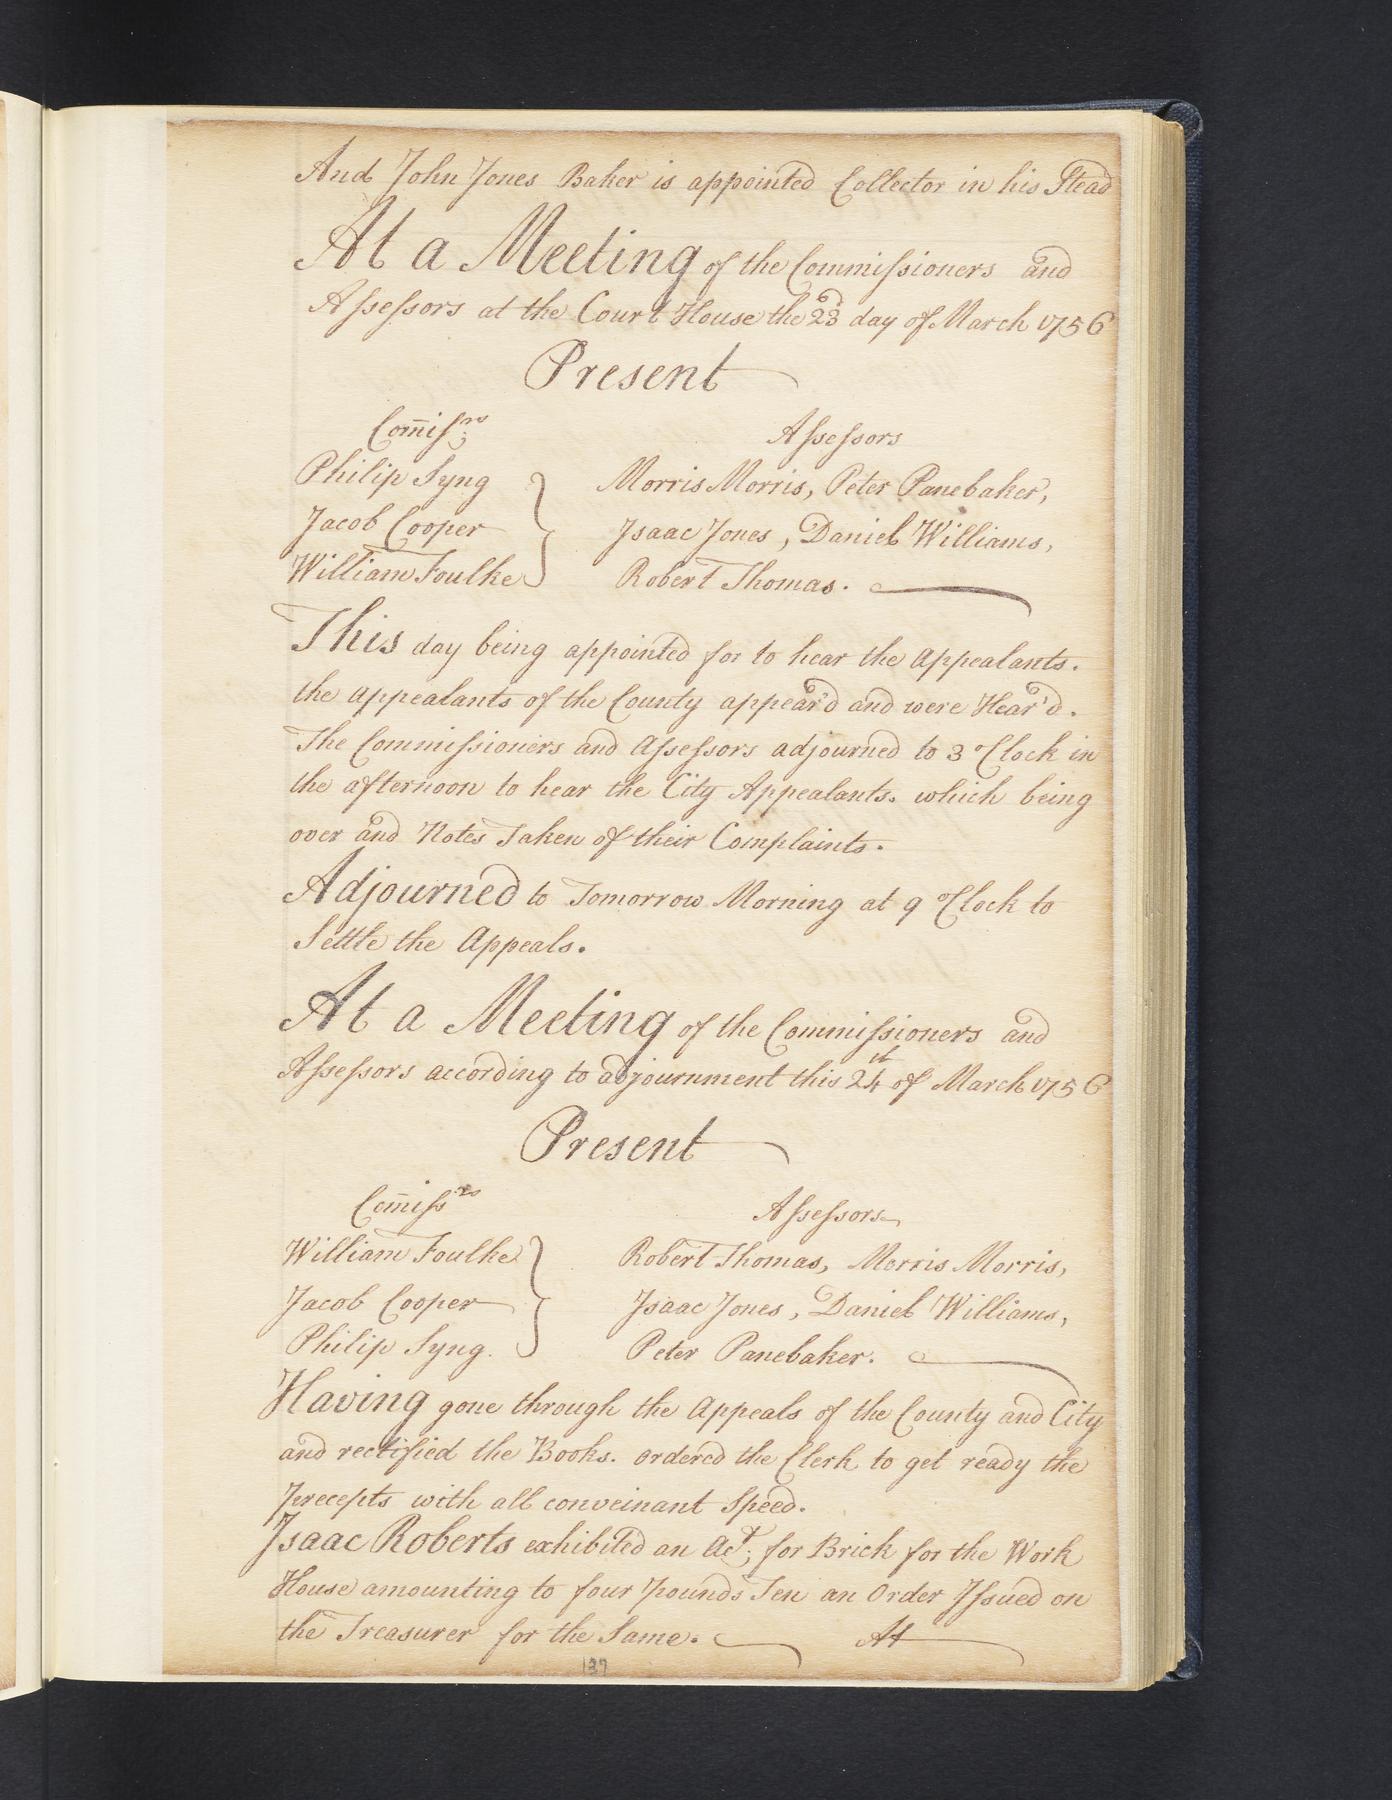 And John Jones Baker is appointed Collector in his Stead
At a Meeting of the Commiſsioners and
Aſseſsors at the Court House the 23d day of March 1756
Present
Com̄iſrs
Aſseſsors
Philip Syng
Morris Morris, Peter Panebaker,
Jacob Cooper
Isaac Jones, Daniel Williams,
William Foulke
Robert Thomas.
This day being appointed for to hear the Appealants.
the Appealants of the County appear'd and were Hear'd.
The Commiſsioners and Aſseſsors adjourned to 3 oClock in
the afternoon to hear the City Appealants. which being
over and Notes Taken of their Complaints.
Adjourned to Tomorrow Morning at 9 oClock to
Settle the Appeals.
At a Meeting of the Commiſsioners and
Aſseſsors according to adjournment this 24th of March 1756
Present
Com̄iſsrs
Aſseſsors
William Foulke
Robert Thomas, Morris Morris,
Jacob Cooper
Isaac Jones, Daniel Williams,
Philip Syng.
Peter Panebaker.
Having gone through the Appeals of the County and City
and rectified the Books. ordered the Clerk to get ready the
precepts with all conveinant Speed.
Isaac Roberts exhibited an Act; for Brick for the Work
House amounting to four pounds Ten an Order Iſsued on
the Treasurer for the Same.
At
137